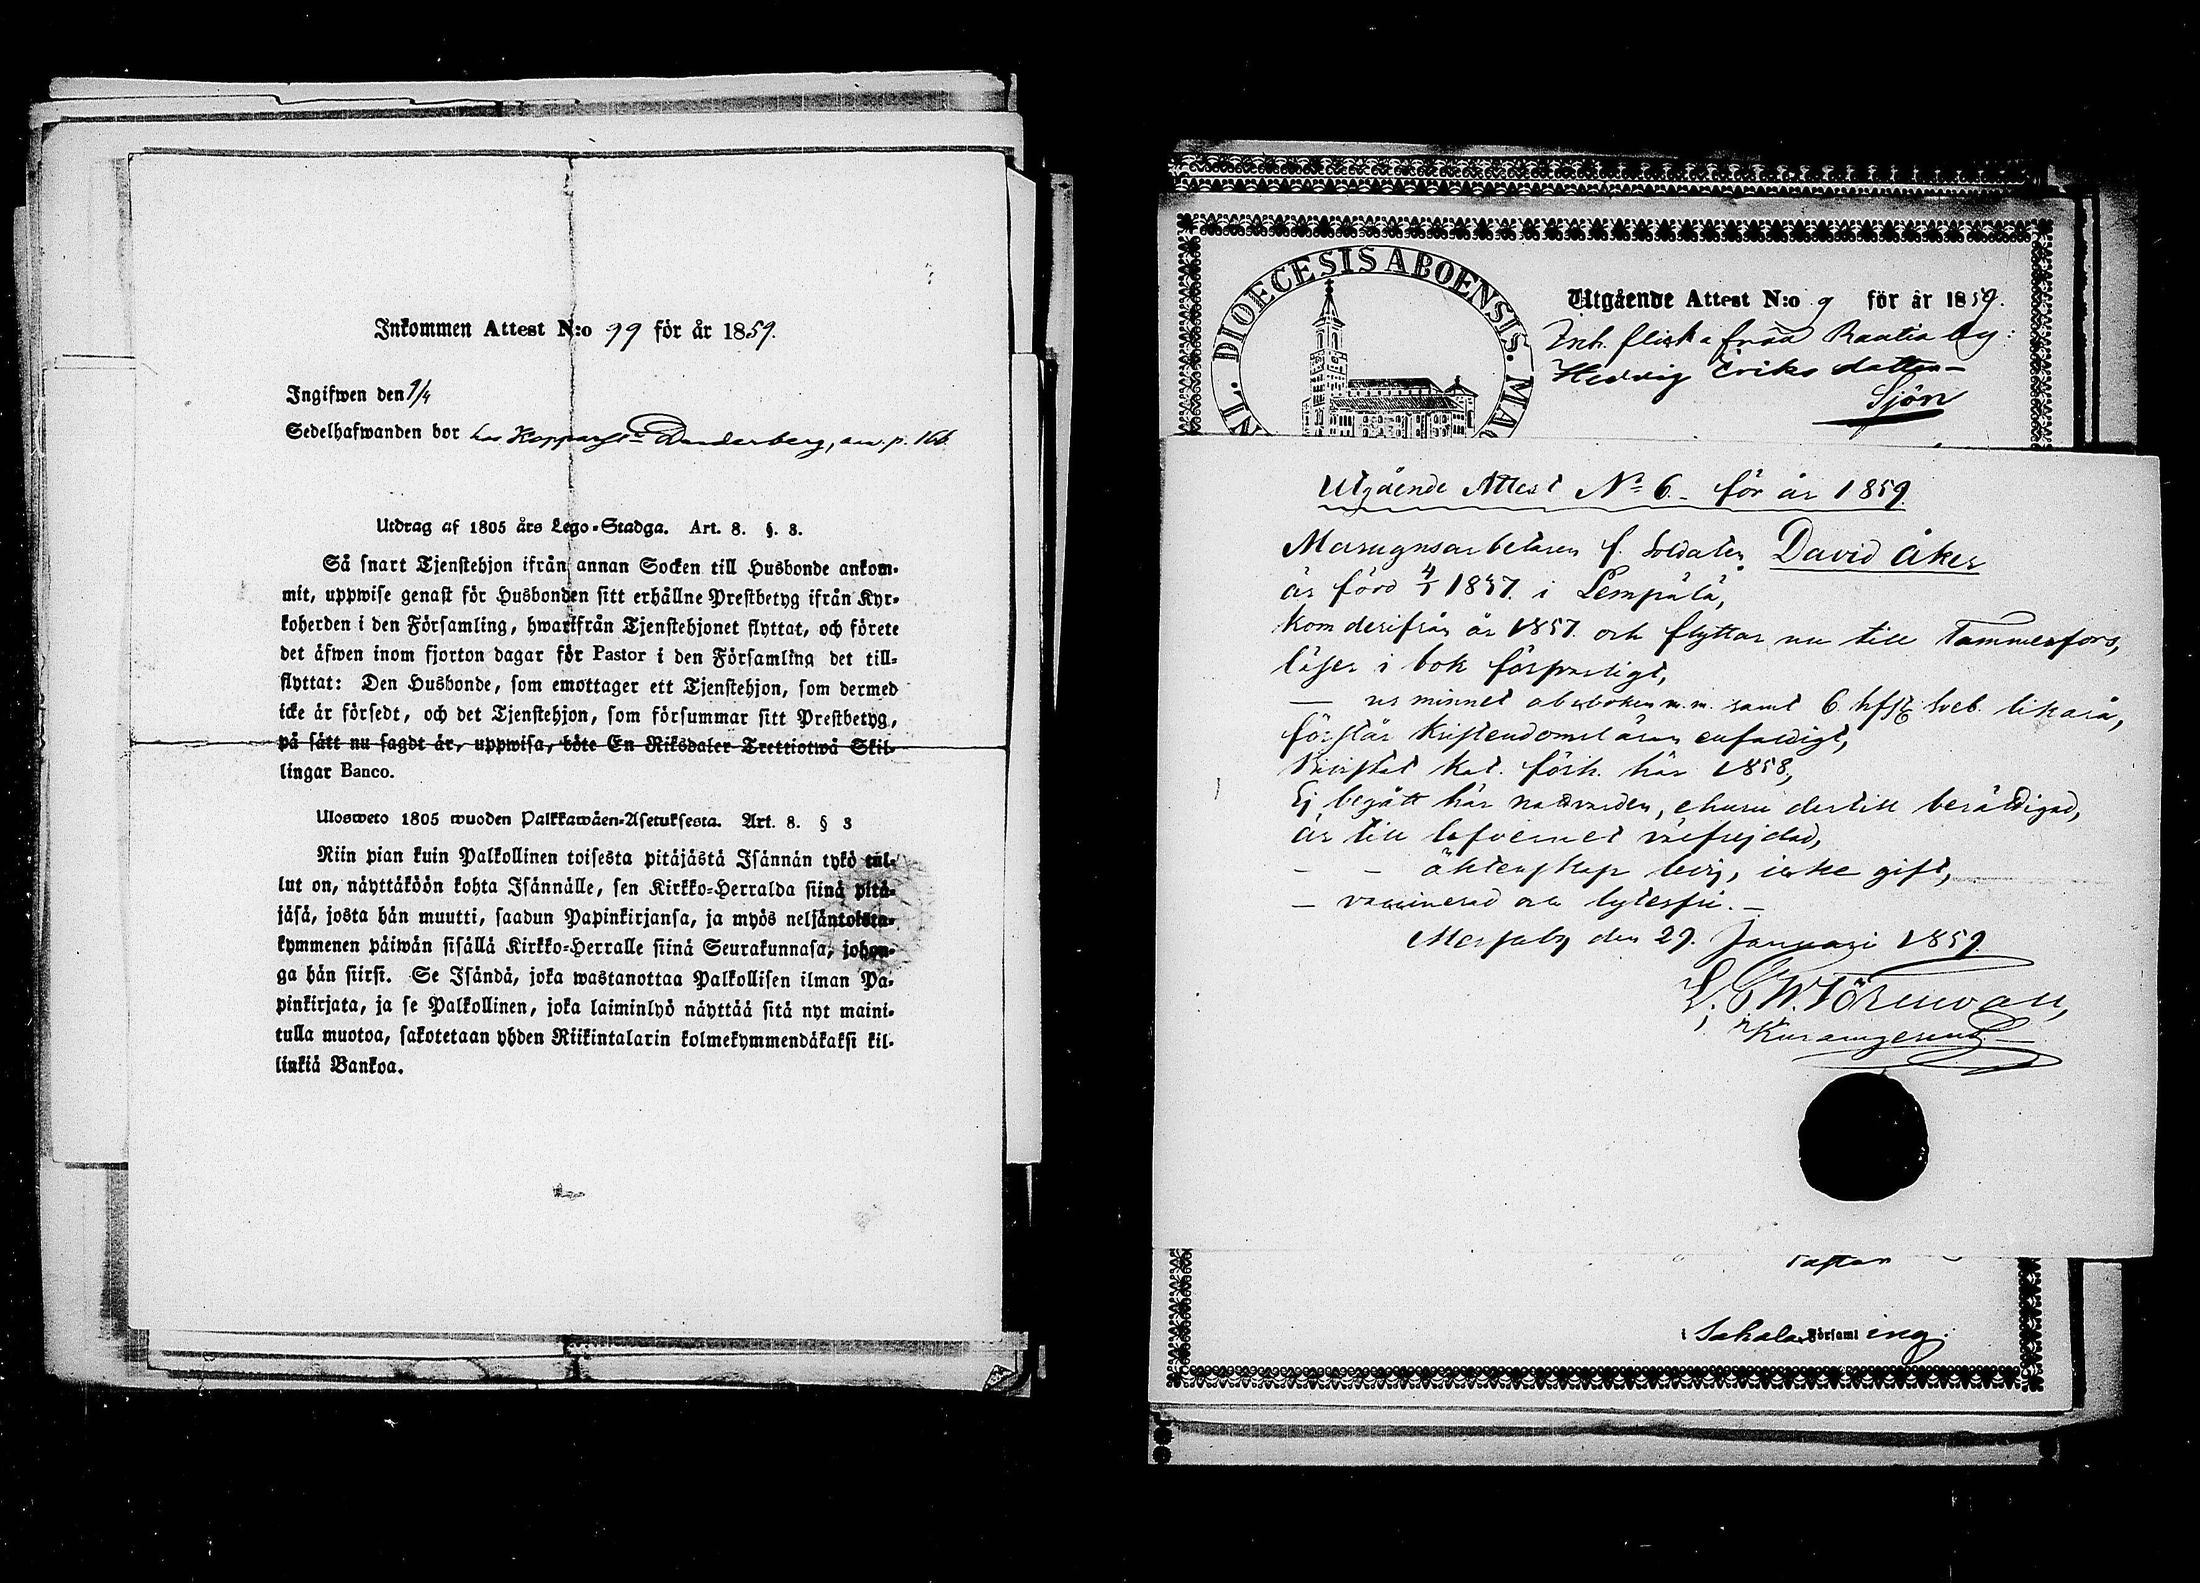 Inkommen Attest N:o 99 för år 1859.
Ingifwen den 9/4
Sedelhafwanden bor hos Kopparsl. Dunderberg, an. p. 166.
Utdrag af 1805 års Lego-Stadga. Art. 8. §. 3.
Så snart Tjenstehjon ifrån annan Socken till Husbonde ankom-
mit, uppwise genast för Husbonden sitt erhållne Prestbetyg ifrån Kyr-
koherden i den Församling, hwarifrån Tjenstehjonet flyttat, och förete
det äfwen inom fjorton dagar för Pastor i den Församling det till-
flyttat: Den Husbonde, som emottager ett Tjenstehjon, som dermed
icke är försedt, och det Tjenstehjon, som försummar sitt Prestbetyg,
på sätt nu sagdt är, uppwisa, böte En Riksdaler Trettiotwå Skil-
lingar Banco.
Ulosweto 1805 wuoden Palkkawäen-Asetuksesta. Art. 8. § 3
Niin pian kuin Palkollinen toisesta pitäjästä Isännän tykö tul-
lut on, näyttäköön kohta Isännälle, sen Kirkko-Herralda siinä pitä-
jäsä, josta hän muutti, saadun Papinkirjansa, ja myös neljäntoista-
kymmenen päiwän sisällä Kirkko-Herralle siinä Seurakunnasa, johon-
ga hän siirsi. Se Isändä, joka wastanottaa Palkollisen ilman Pa-
pinkirjata, ja se Palkollinen, joka laiminlyö näyttää sitä nyt maini-
tulla muotoa, sakotetaan yhden Riikintalarin kolmekymmendäkaksi kil-
linkiä Bankoa.
DIOECESIS ABOENSIS. MA
Utgående Attest N:o 9 för år 1859.
Inh. flicka från Raatia by:
Hedvig Eriks dotter
Sjön
Utgående Attest No 6 för år 1859.
Masugnsarbetaren f. Soldaten David Åker
är född 4/1 1837 i Lempälä,
kom derifrån år 1857 och flyttar nu till Tammerfors,
läser i bok försvarligt,
— ur minnet abcboken m.m. samt 6 hfst. Sveb. likaså,
förstår kristendomsläran enfaldigt,
bevistat kat. förh. här 1858,
Ej begått här nattvarden, ehuru dertill berättigad,
är till lefvernet välfrejdad,
— — äktenskap ledig, icke gift,
— vaccinerad och lytesfri. —
den 29. Januari 1859.
L. G. W. Törnwall,
taflan
i Sahalax Församling.